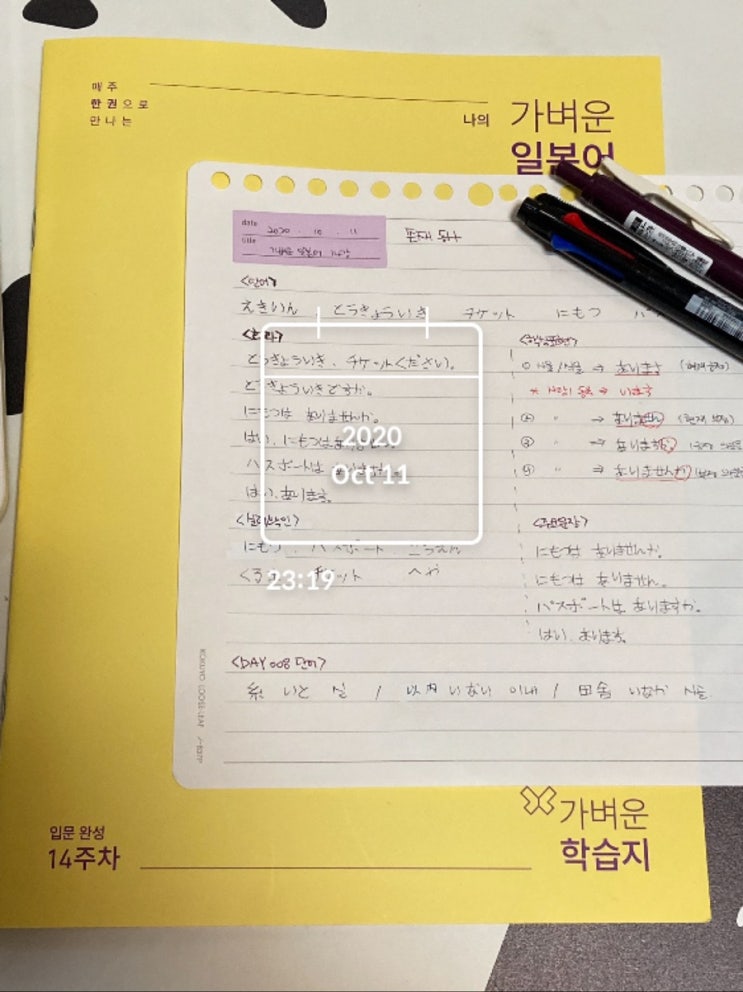 매주
한 권으로
만나는
나의 가벼운
일본어
date 2020 . 10 . 11
title 가벼운 일본어
존재 동사
<단어>
えきいん とうきょういき チケット にもつ パ
<회화>
とうきょういき、チケットください。
とうきょういきですか。
にもつは ありませんか。
はい、にもつはありません。
パスポートは ありますか。
はい、あります。
<학습표현>
① 사물/식물 → あります
* 사람/동물 → います
② 〃 → ありません
③ 〃 → ありますか
⑤ 〃 → ありませんか
にもつ パスポート
くるま チケット へや
<주요문장>
にもつは ありませんか。
にもつは ありません。
パスポートは ありますか。
はい、あります。
<DAY 008 단어>
糸 いと 실 / 以内 いない 이내 / 田舎 いなか 시골
KOKUYO LOOSE-LEAF
2020
Oct 11
23:19
입문 완성
14주차
가벼운
학습지